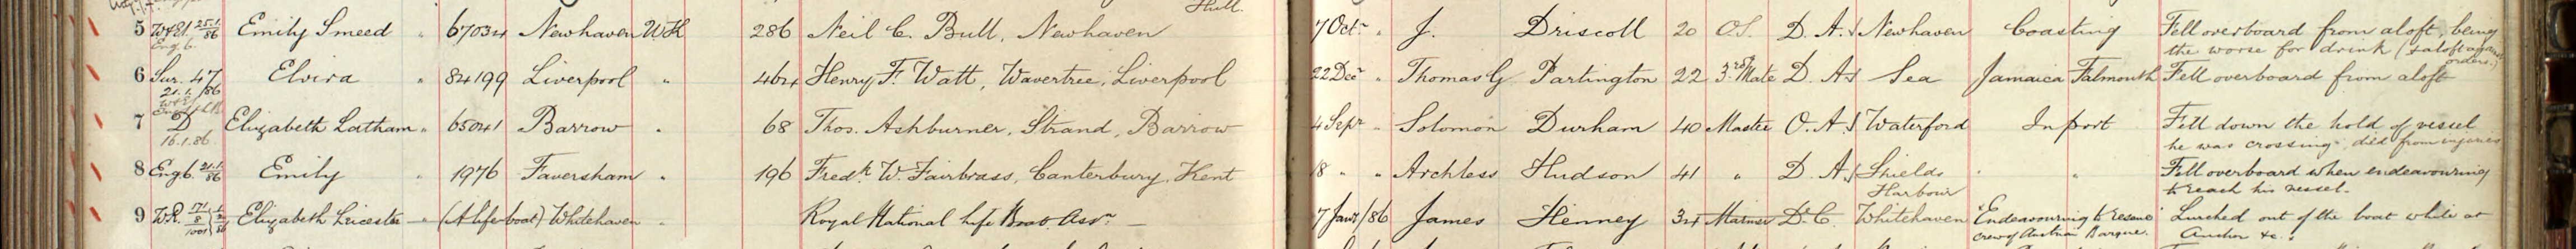 Hull.
5 W&El. 25.1/86 Emily Smeed " 67034 Newhaven W.H 286 Neil C. Bull, Newhaven 7 Octr " J. Driscoll 20 O.S. D. A. Newhaven Coasting Fell overboard from aloft, being
Eng. 6. the worse for drink (
6 Sur. 47 Elvira " 84199 Liverpool " 464 Henry F. Watt, Wavertree, Liverpool 22 Decr " Thomas G Partington 22 3rd Mate D. A. Sea Jamaica Falmouth Fell overboard from aloft
21.1./86 orders.)
7 D Elizabeth Latham " 65041 Barrow " 68 Thos. Ashburner, Strand, Barrow 4 Sepr " Solomon Durham 40 Master O. A. Waterford In port Fell down the hold of vessel
16.1.86 he was crossing, died from injuries
8 Eng 6. 21.1/86 Emily " 1976 Faversham " 196 Fredk W. Fairbrass, Canterbury, Kent 18 " " Archless Hudson 41 " D. A. Shields " " Fell overboard when endeavouring
Harbour to reach his vessel.
9 W.R. Elizabeth Leicester — (A life-boat) Whitehaven " Royal National Life Boat Assn — 7 Jany/86 James Henney 34 Mariner D. C. Whitehaven "Endeavouring to rescue" Lurched out of the boat while at
crew of Austrian Barque. Anchor &c.